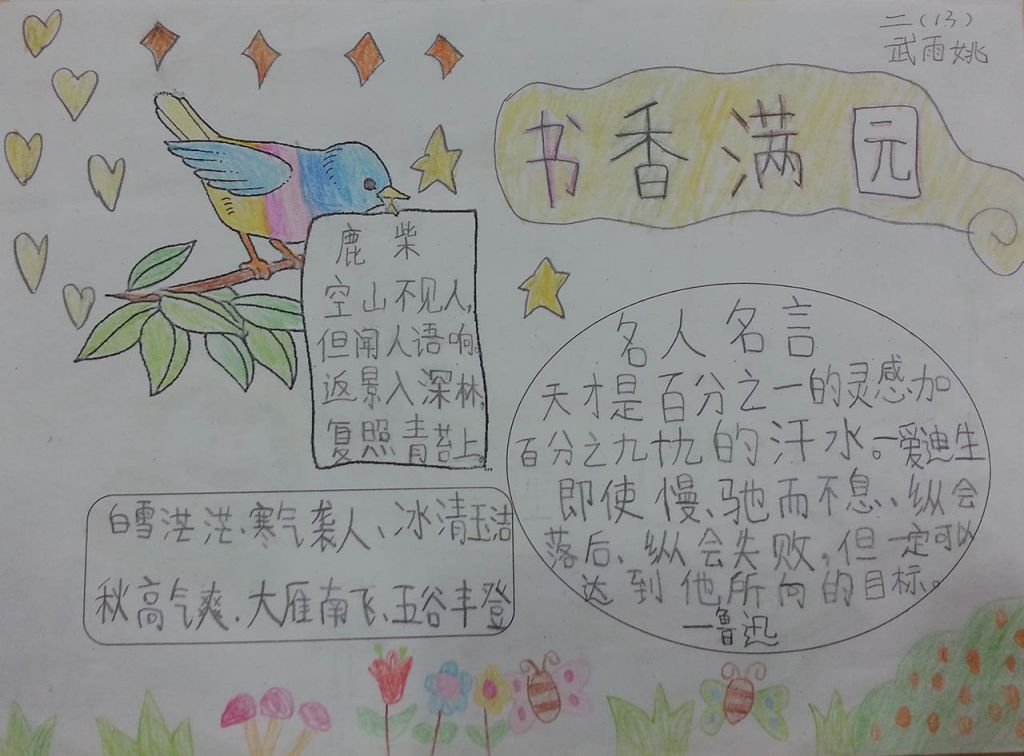 二(13)
武雨姚
书香满园
鹿柴
空山不见人,
但闻人语响。
返景入深林,
复照青苔上。
名人名言
天才是百分之一的灵感加
百分之九十九的汗水。—爱迪生
即使慢、驰而不息、纵会
落后、纵会失败,但一定可以
达到他所向的目标。
—鲁迅
白雪茫茫、寒气袭人、冰清玉洁
秋高气爽、大雁南飞、五谷丰登